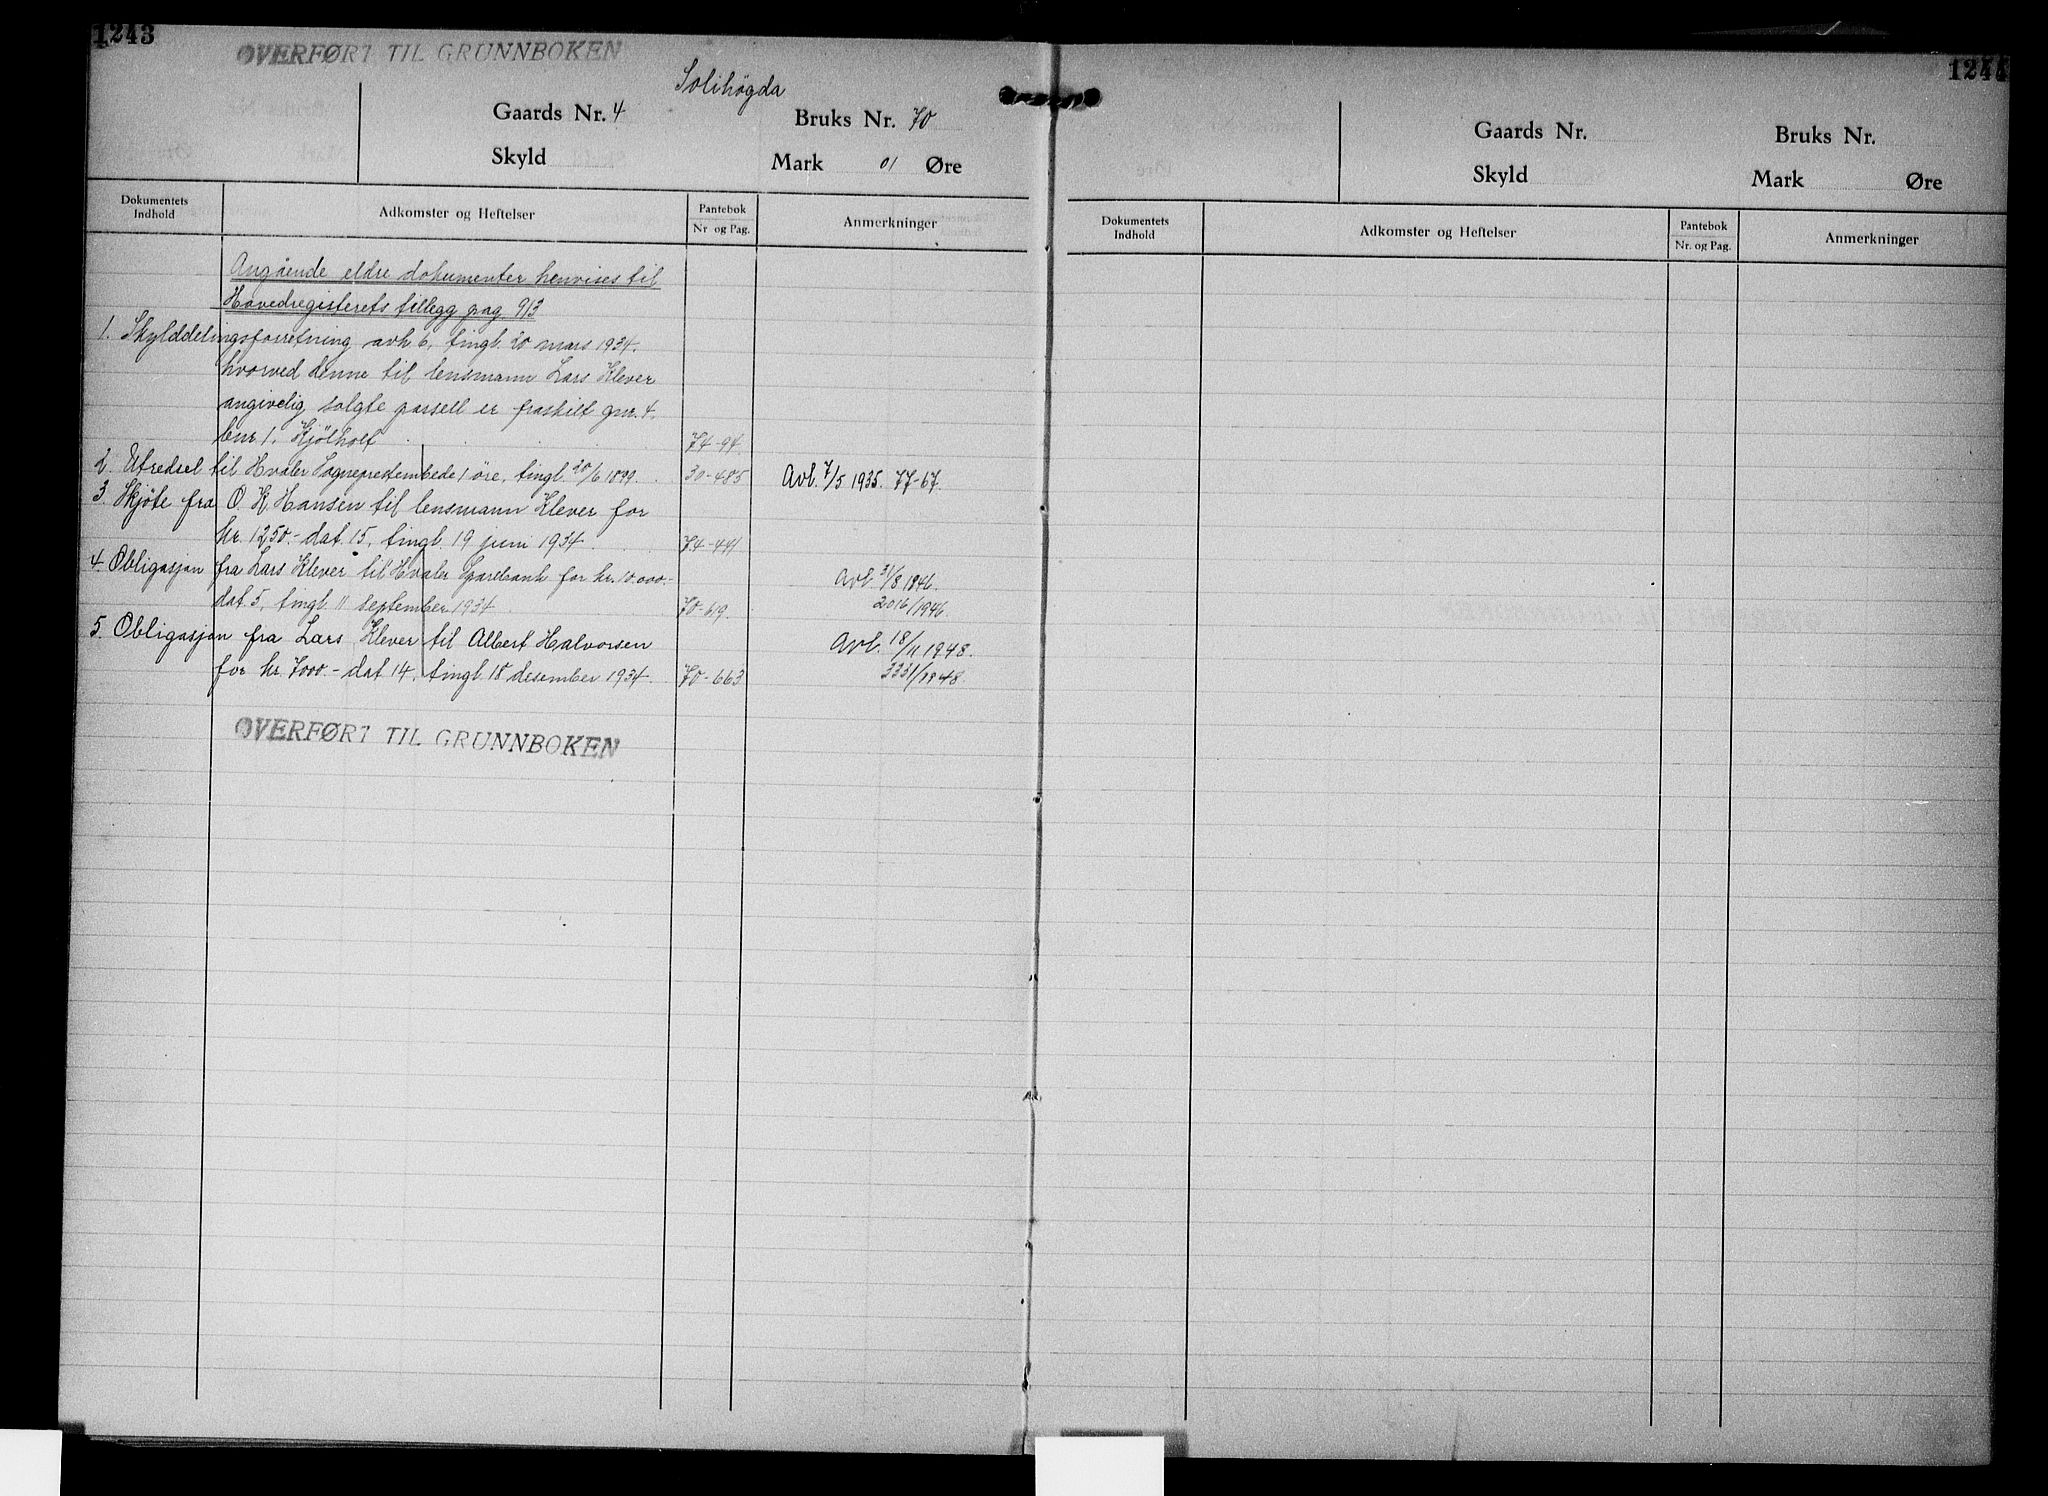 1243
OVERFØRT TIL GRUNNBOKEN
Solihøgda
Gaards Nr. 4 Bruks Nr. 70
Skyld Mark 01 Øre
Dokumentets Indhold Adkomster og Heftelser Pantebok Nr og Pag. Anmerkninger
Angående eldre dokumenter henvises til
Hovedregisterets tillegg pag. 913
1. Skylddelingsforretning avh 6, tingl. 20 mars 1934.
hvorved denne til lensmann Lars Klever
angivelig solgte parsell er fraskilt gnr. 4.
bnr 1. Kjølholt 74-94.
2. Utredsel til Hvaler Sogneprestembede 1 øre, tingl. 20/6 1899. 30-485 Avl. 7/5 1935. 77-67.
3. Skjøte fra O. K. Hansen til lensmann Klever for
kr. 1250.- dat. 15, tingl. 19 juni 1934. 74-441
4. Obligasjon fra Lars Klever til Hvaler Sparebank for kr. 10.000- Avl. 31/8 1946.
dat. 5, tingl. 11 september 1934 70-619. 2016/1946.
5. Obligasjon fra Lars Klever til Albert Halvorsen Avl. 18/11 1948.
for kr. 7000.- dat 14, tingl 18 desember 1934. 70-663 3331/1948
OVERFØRT TIL GRUNNBOKEN
1244
Gaards Nr. Bruks Nr.
Skyld Mark Øre
Dokumentets Indhold Adkomster og Heftelser Pantebok Nr. og Pag. Anmerkninger